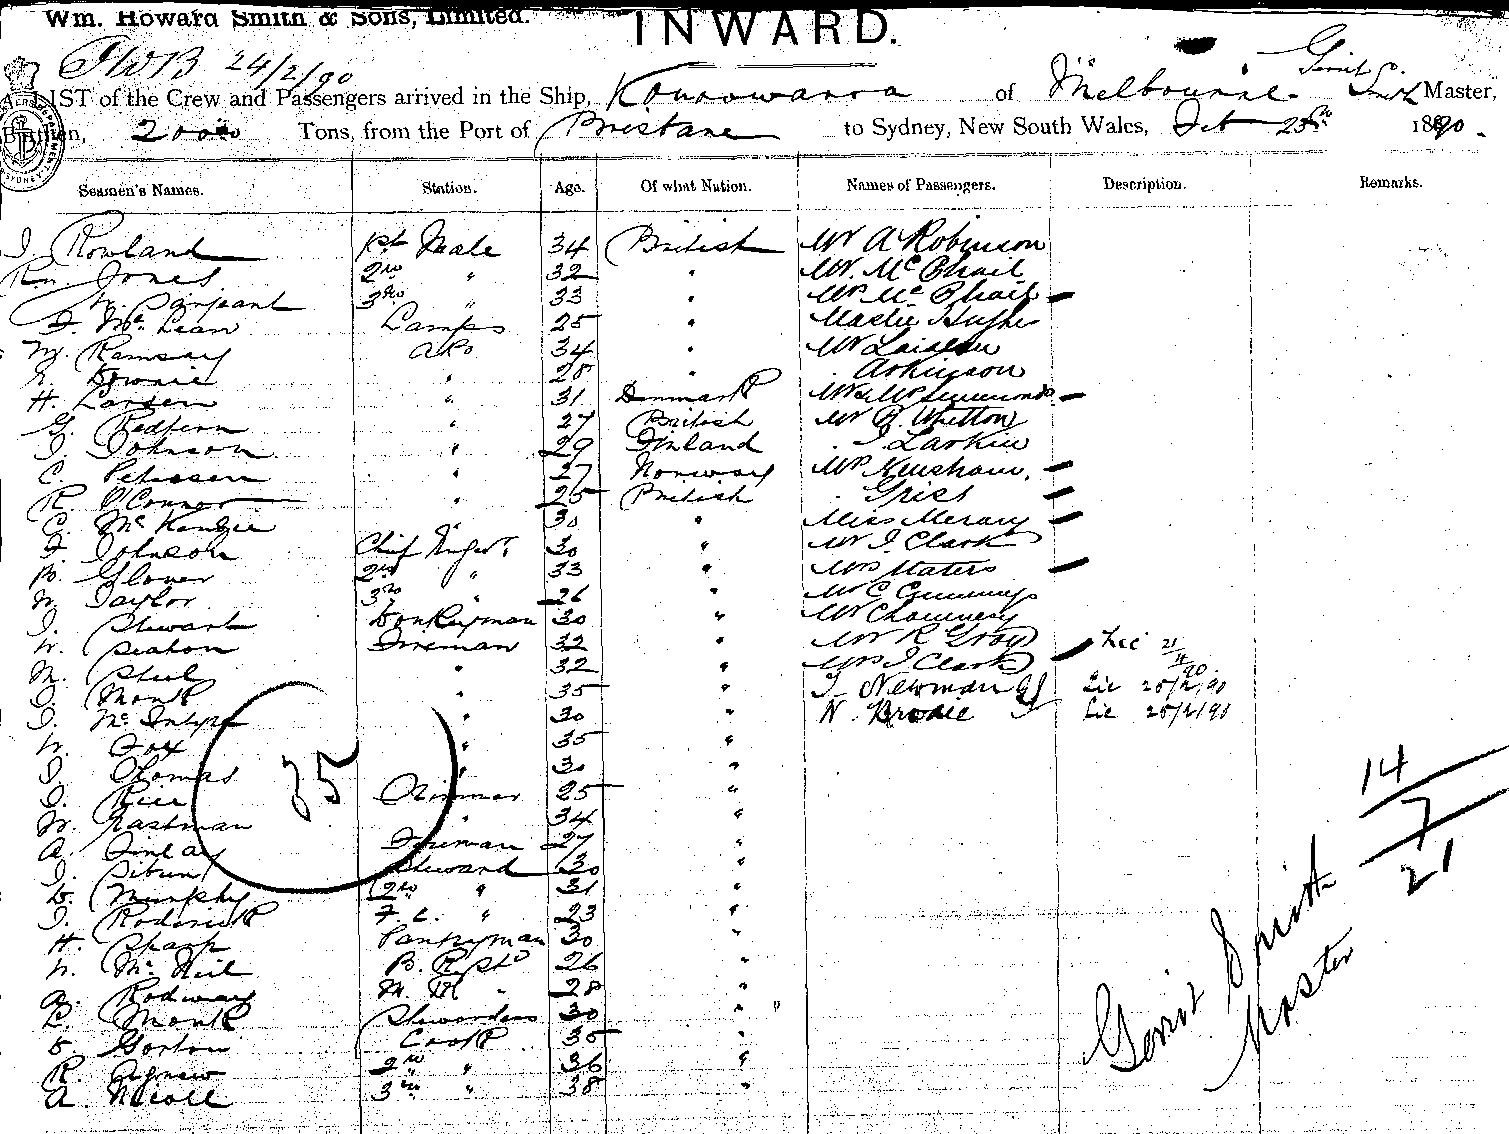 Wm. Howard Smith & Sons, Limited.
INWARD.
24/2/90
LIST of the Crew and Passengers arrived in the Ship, Konoowarra of Melbourne Gerrit Smith Master,
Burthen, 2000 Tons, from the Port of Brisbane to Sydney, New South Wales, Feb 23rd 1890.
Seamen's Names. Station. Age. Of what Nation. Names of Passengers. Description. Remarks.
J. Rowland 1st Mate 34 British Mr A Robinson
Rn Jones 2nd " 32 " Mr. McPhail
W. Sargeant 3rd " 33 " Mrs McPhail
F. McLean Lamps 25 " Master Hughes
M. Ramsay ABs 34 " Mr Laidlaw
Downie " 28 " Atkinson
H. Larsen " 31 Denmark
G. Redfern " 27 British Mr B. Whitton
J. Johnson " 29 Finland J. Larkin
C. Petersen " 27 Norway
R. O'Connor " 25 British Grist
C. McKenzie 30 "
F. Johnson Chief Engr. 30 " Mr J. Clark
B. Glover 2nd " 33 " Mrs Maters
W. Taylor 3rd " 26 "
J. Stewart Donkeyman 30 "
W. Seaton Fireman 32 " Mr R Gray Lic 21/11/90
M. Steel " 32 Mrs J Clark
J. Monk " 35 " J Newman Lic 25/2/90
J. McIntyre " 30 " N. Brodie Lic 25/2/90
W. Fox " 35 "
J. Thomas " 30 "
J. Rice Trimmer 25 "
W. Eastman " 34 "
A. Finlay Fireman 27 "
J. Sibun Steward 30 "
D. Murphy 2nd " 31 "
J. Roderick F.C. " 23 "
H. Sharp Pantryman 30 "
W. McNeil B. R. Std 26 "
A. Rodway M. R. " 28 "
E. Monk Stewardess 30 " "
G. Gorton Cook 35 "
R. Agnew 2nd " 36 "
A. Nicoll 3rd " 38 "
35
14
7
21
Gerrit Smith
Master